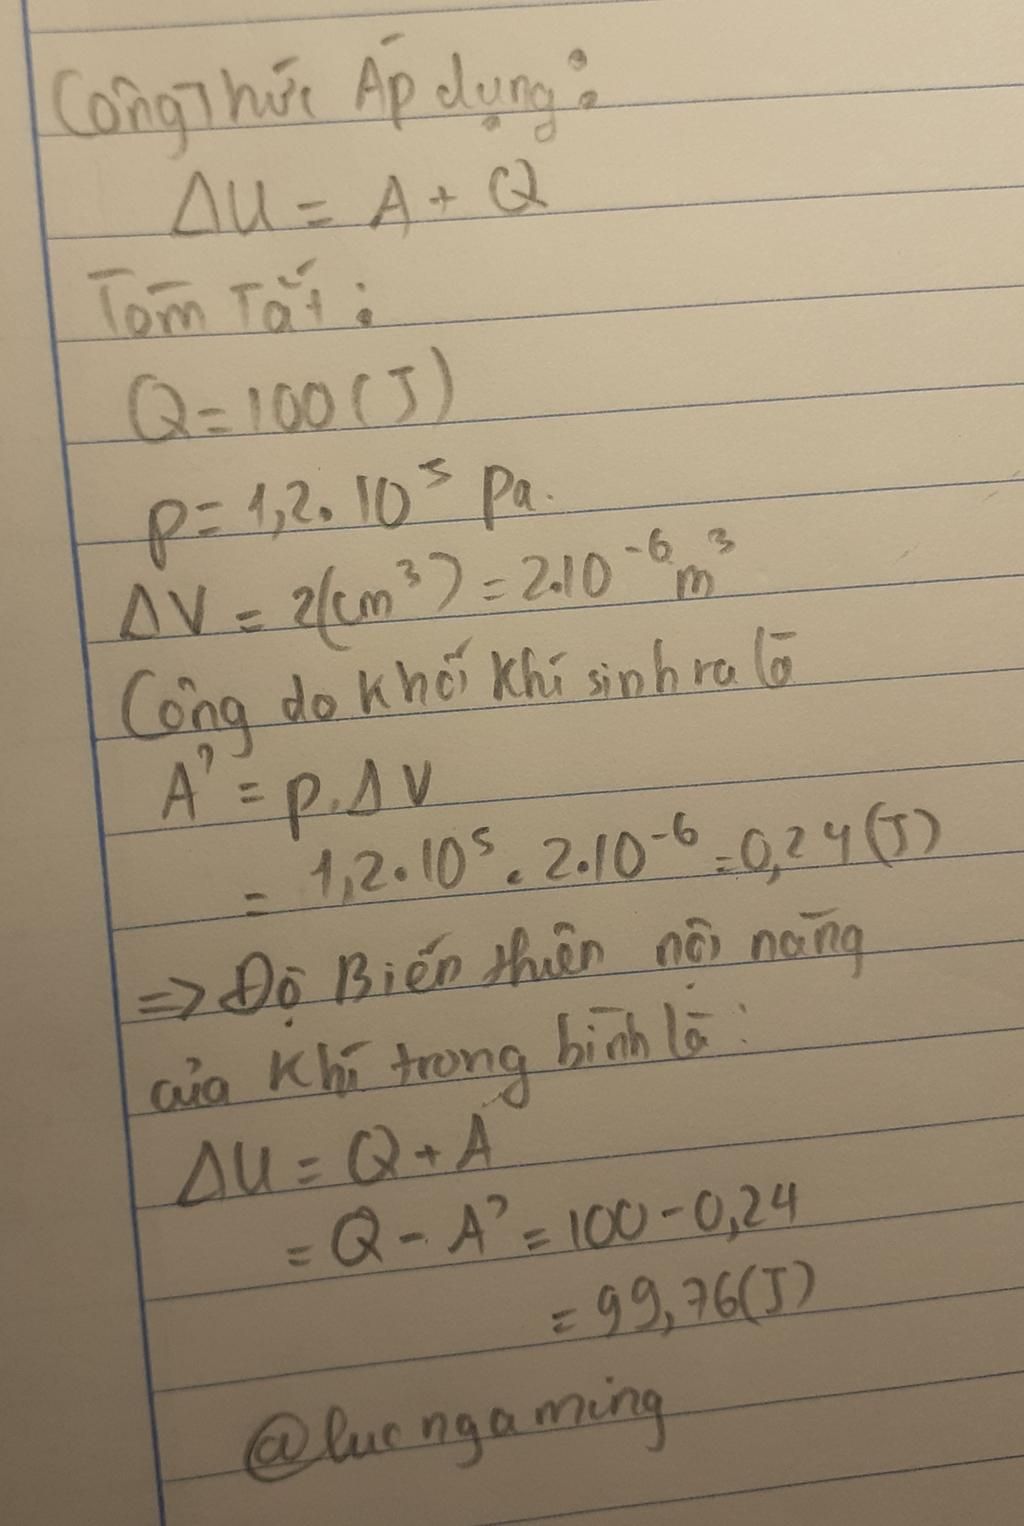 Công Thức Áp dụng:
ΔU = A + Q
Tóm Tắt:
Q = 100 (J)
p = 1,2.10⁵ Pa.
ΔV = 2(cm³) = 2.10⁻⁶ m³
Công do khối khí sinh ra là
A' = p.ΔV
= 1,2.10⁵.2.10⁻⁶ = 0,24 (J)
=> Độ Biến thiên nội năng
của khí trong bình là:
ΔU = Q + A
= Q - A' = 100 - 0,24
= 99,76 (J)
@lucngaming